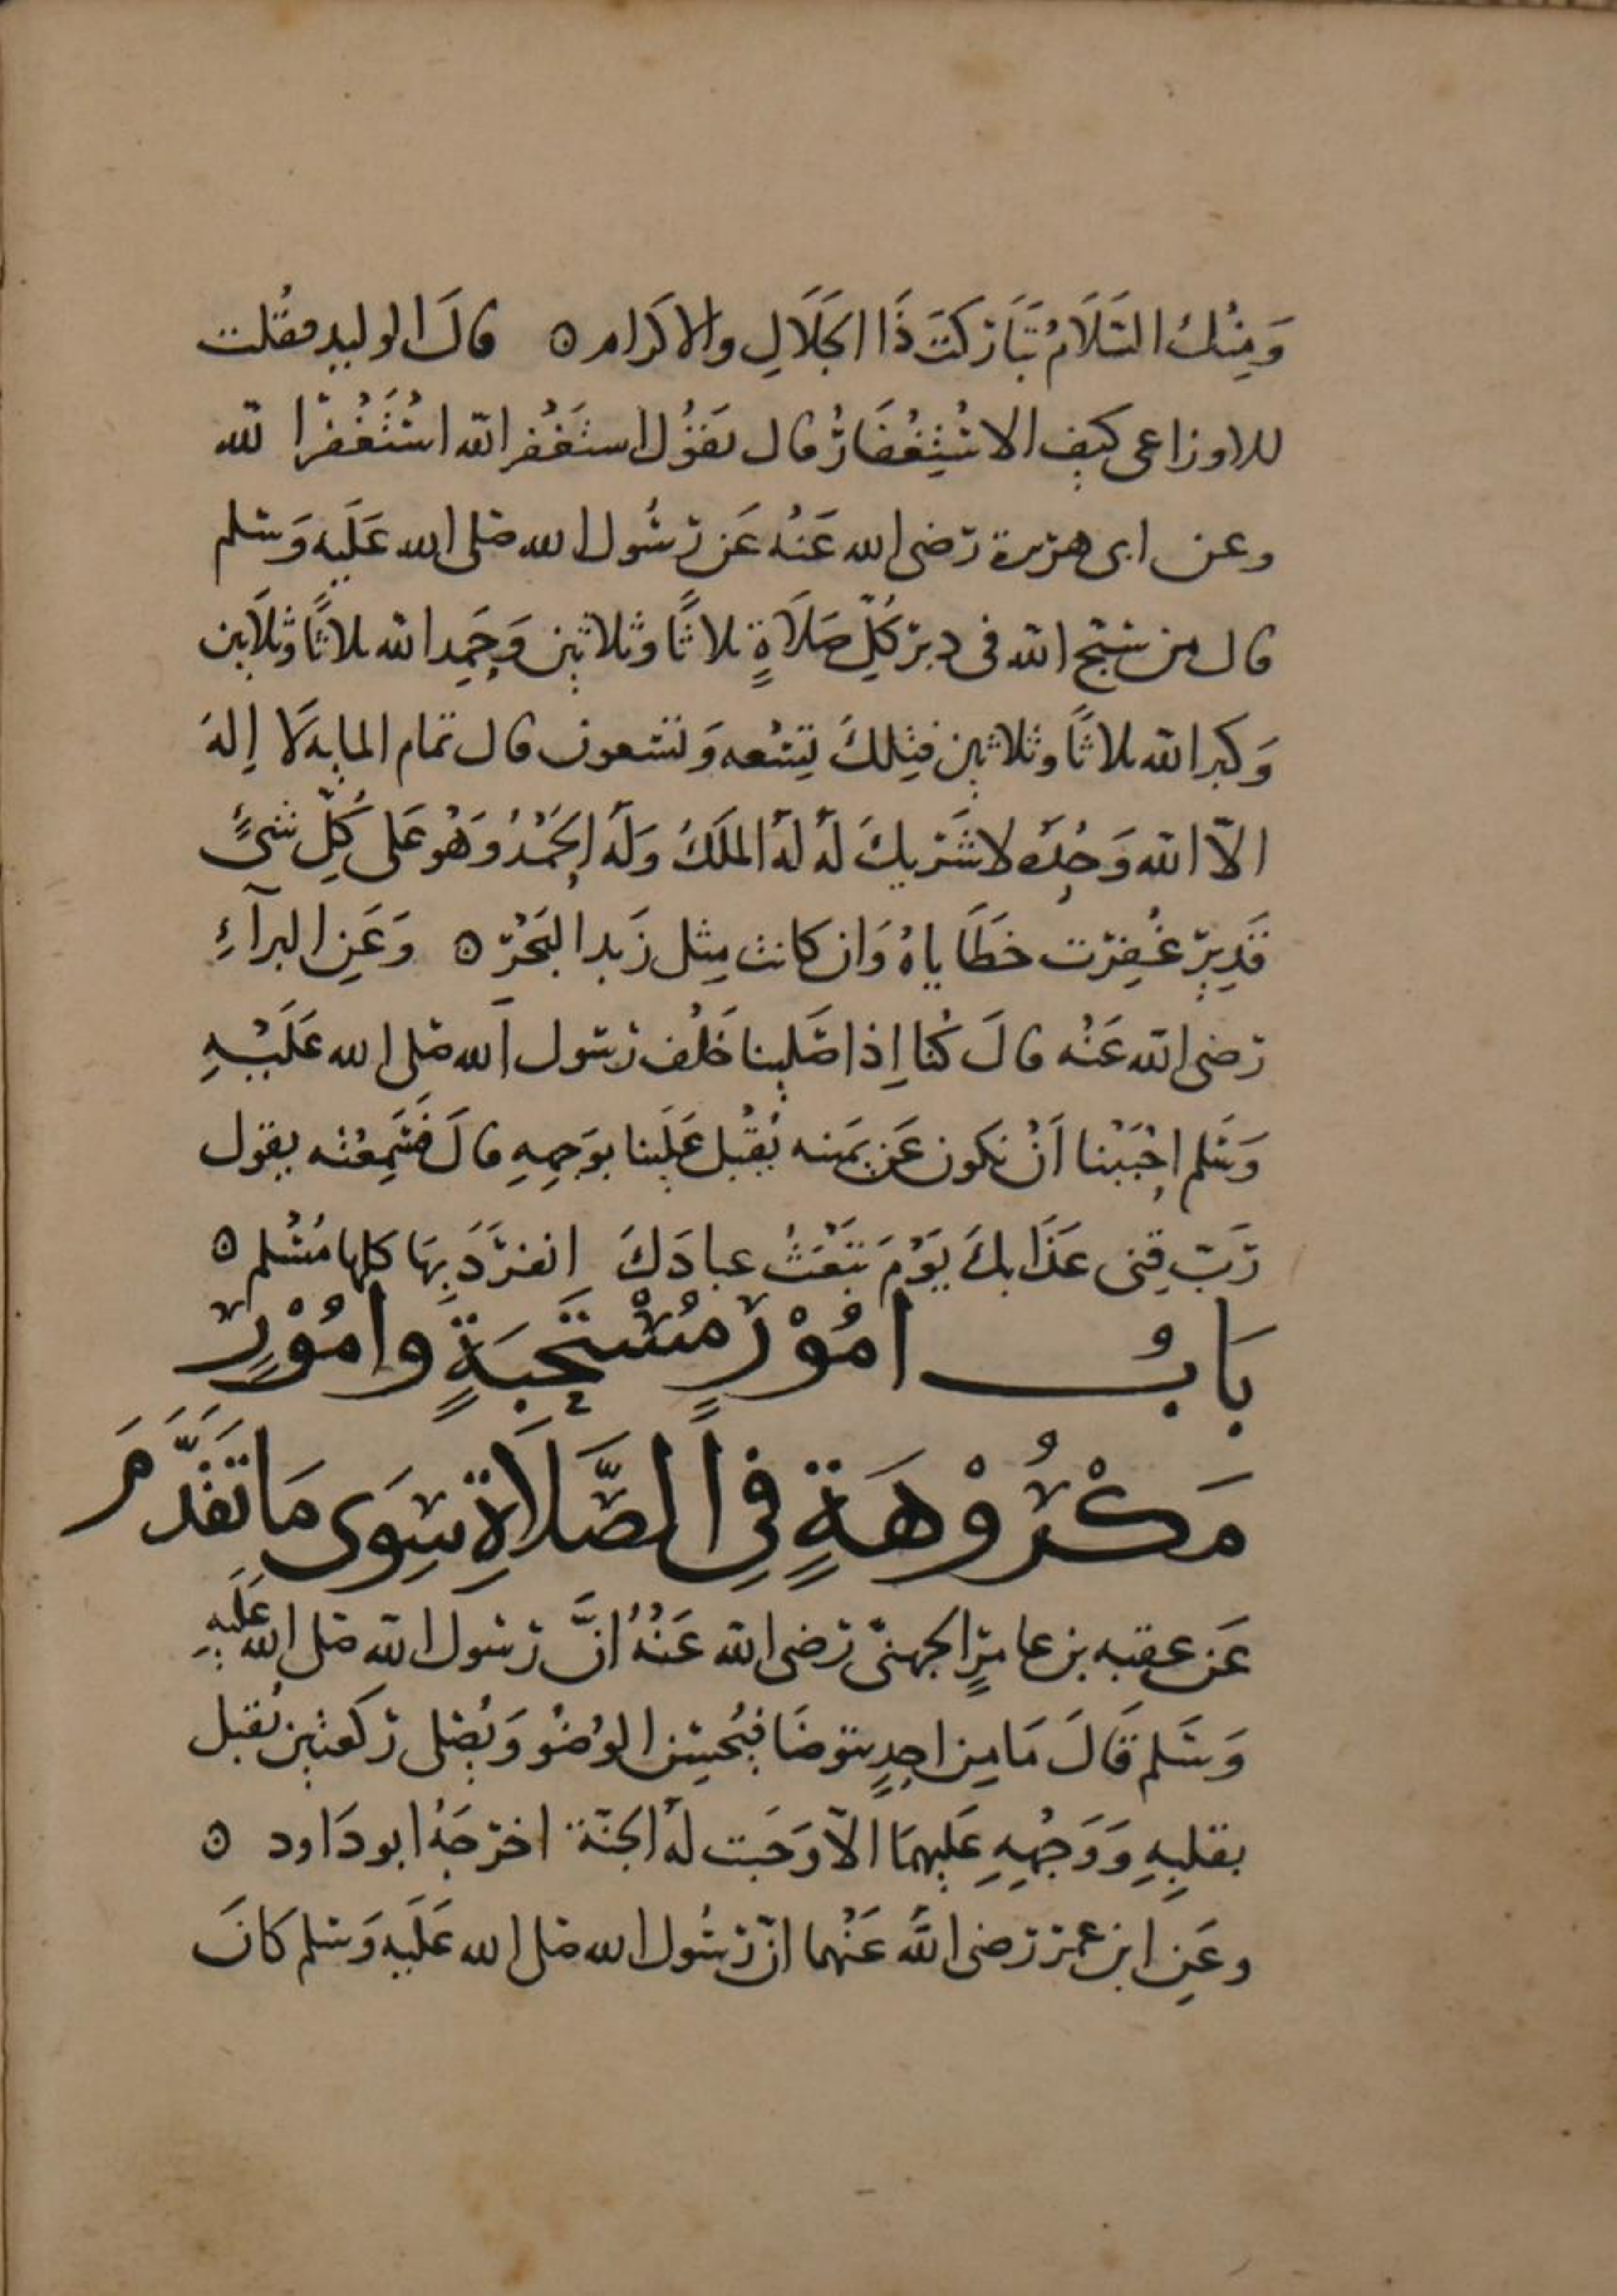 وَمِنْكَ السَّلَامُ تَبَارَكْتَ ذَا الجَلَالِ والاكرام ۞ قالَ الوليد فقُلت
للاوزاعى كيف الاسْتِغْفَارُ قال تقُوُل استَغْفر الله اسْتَغْفرُ الله
وعن ابى هريرة رَضى الله عَنْهُ عَن رَسُول الله صَلى الله عَلَيهِ وَسَلم
قال من سَبّح الله فى دبر كُلِّ صَلَاةٍ ثلاثًا وثلاثين وَحَمِد الله ثلاثًا وثلَاثين
وَكبر الله ثلاثًا وثلاثين فتِلكَ تِسْعه وَتسَعون قال تمام المايه لَا إله
الاّ الله وَحْدَهُ لا شَريكَ لَهُ لَهُ الملكُ وَلَهُ الحَمْدُ وَهُو عَلى كُلِّ شىءٍ
قَدِيرٌ غُفِرَت خطَايَاهُ وَان كانت مِثل زَبد البَحْرِ ۞ وَعَنِ البرآءِ
رَضى الله عَنْه قالَ كُنا إِذا صَلينا خَلْف رَسَول الله صَلى الله عَلَيْهِ
وَسَلم احْبَبْنا اَنْ نكون عَن يَمينه يُقْبل عَلينا بوَجههِ قالَ فسَمِعْته يقول
رَبِّ قِنى عَذَابكَ يَوْمَ تبْعَثُ عبادَكَ انفرَدَ بِهَا كلها مُسْلم ۞
بَابُ امُوْرٍ مُسْتَحَبَةٍ وامُوْرٍ
مَكْرُوْهَةٍ فِى الصَّلَاةِ سِوَى مَا تَقَدَّمَ
عَن عقبه بن عامرٍ الجهنىّ رَضى الله عَنْهُ انَّ رَسَول الله صَلى الله عَلَيهِ
وَسَلم قَالَ مَا مِن احدٍ يتوضَا فيُحْسِن الوُضُو وَيُصَلى رَكعتين يُقبل
بقلبِهِ وَوَجْههِ عَلِيهمَا الاّ وَجَبت لَهُ الجنّة اخرَجَهُ ابو دَاود ۞
وعَنِ ابن عمر رَضى الله عَنْهما انّ رَسُول الله صَلى الله عَلَيهِ وَسَلم كَانَ